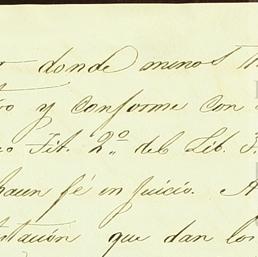 donde menos
y conforme con
Tit. 2º del Lib. 3
hacen fé en juicio. A
que dan los